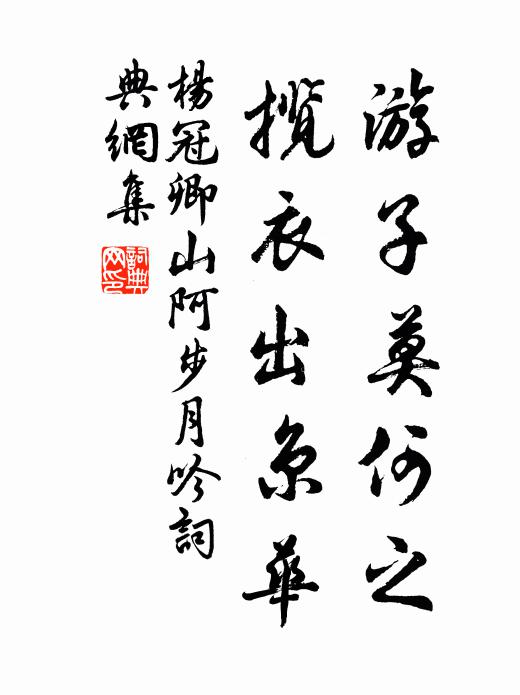 游子莫何之
揽衣出京华
楊冠卿山阿步月吟詞
典網集
詞典网印